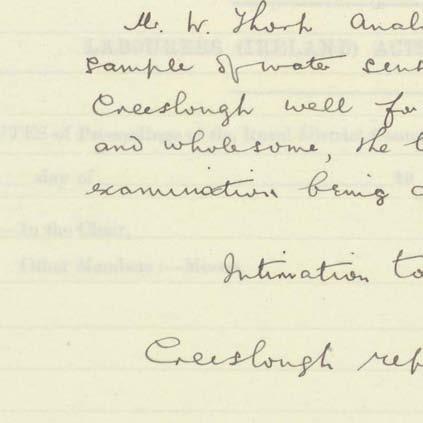 Mr. W. Thorp Anal
sample of water sent
Creeslough well fo
and wholesome, the b
examination being
Intimation to
Creeslough rep
LABOURERS (IRELAND) ACT
day of
In the Chair,
Other Members :—Mess